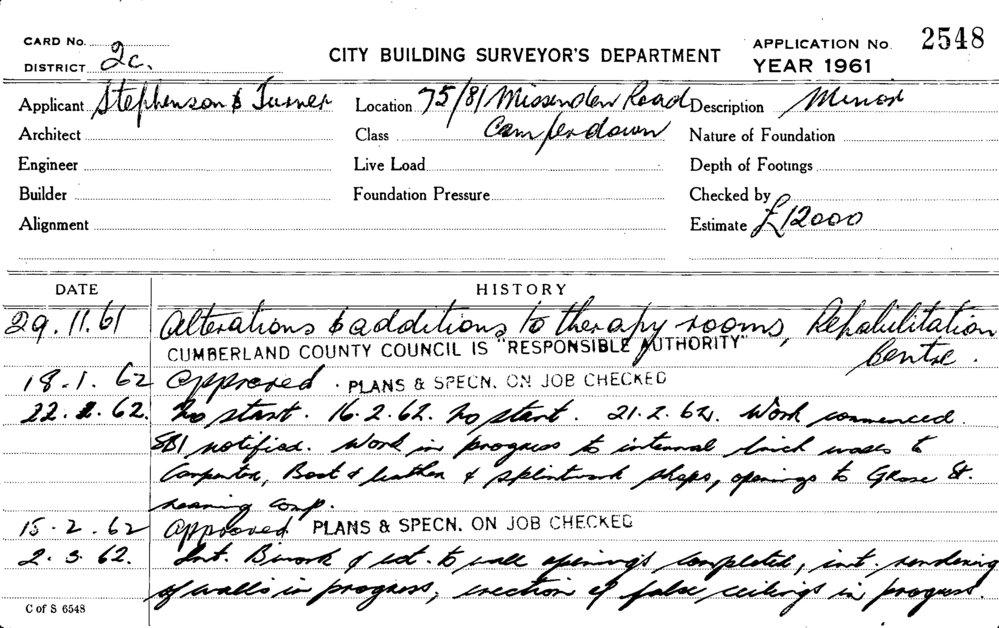 CARD No.
DISTRICT 2c.
CITY BUILDING SURVEYOR'S DEPARTMENT
APPLICATION No. 2548
YEAR 1961
Applicant Stephenson & Turner Location 75/81 Missenden Road Description Minor
Architect Class Camperdown Nature of Foundation
Engineer Live Load Depth of Footings
Builder Foundation Pressure Checked by
Alignment Estimate £12000
DATE HISTORY
29.11.61 Alterations & additions to therapy rooms, Rehabilitation
CUMBERLAND COUNTY COUNCIL IS "RESPONSIBLE AUTHORITY" Centre.
18.1.62 Approved . PLANS & SPECN. ON JOB CHECKED
22. 62. No start. 16.2.62. No start. 21.2.62. Work commenced.
notified. Work in progress to internal brick walls to
Carpenter, Boot & leather & splintwork shops, openings to Grose St.
comp.
15.2.62 Approved PLANS & SPECN. ON JOB CHECKED
2.3.62. Int. B'work & to wall openings completed, int. rendering
of walls in progress, erection of false ceilings in progress.
C of S 6548